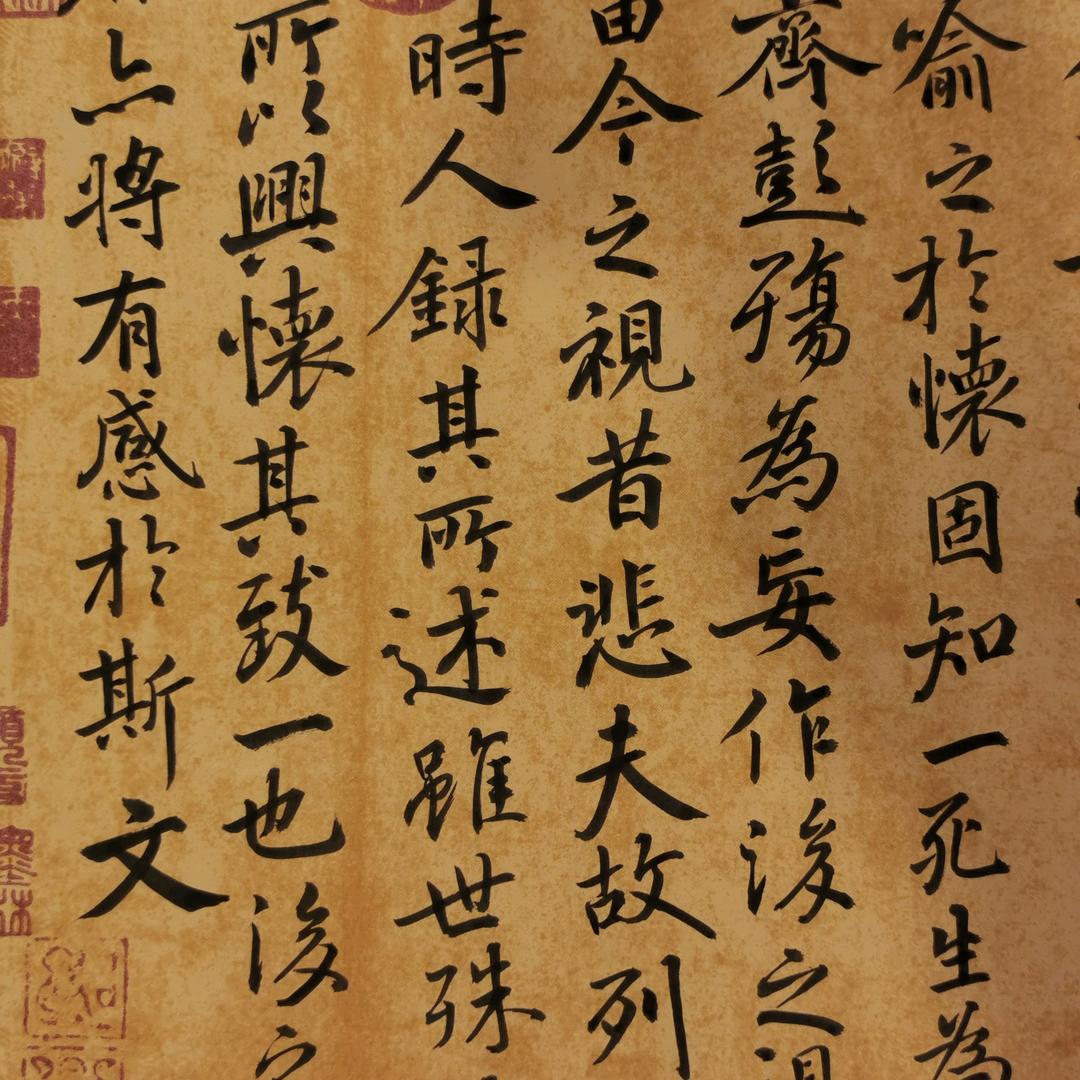 喻之於懷固知一死生為
齊彭殤為妄作後之
由今之視昔悲夫故列
時人錄其所述雖世殊
所以興懷其致一也後之
亦將有感於斯文